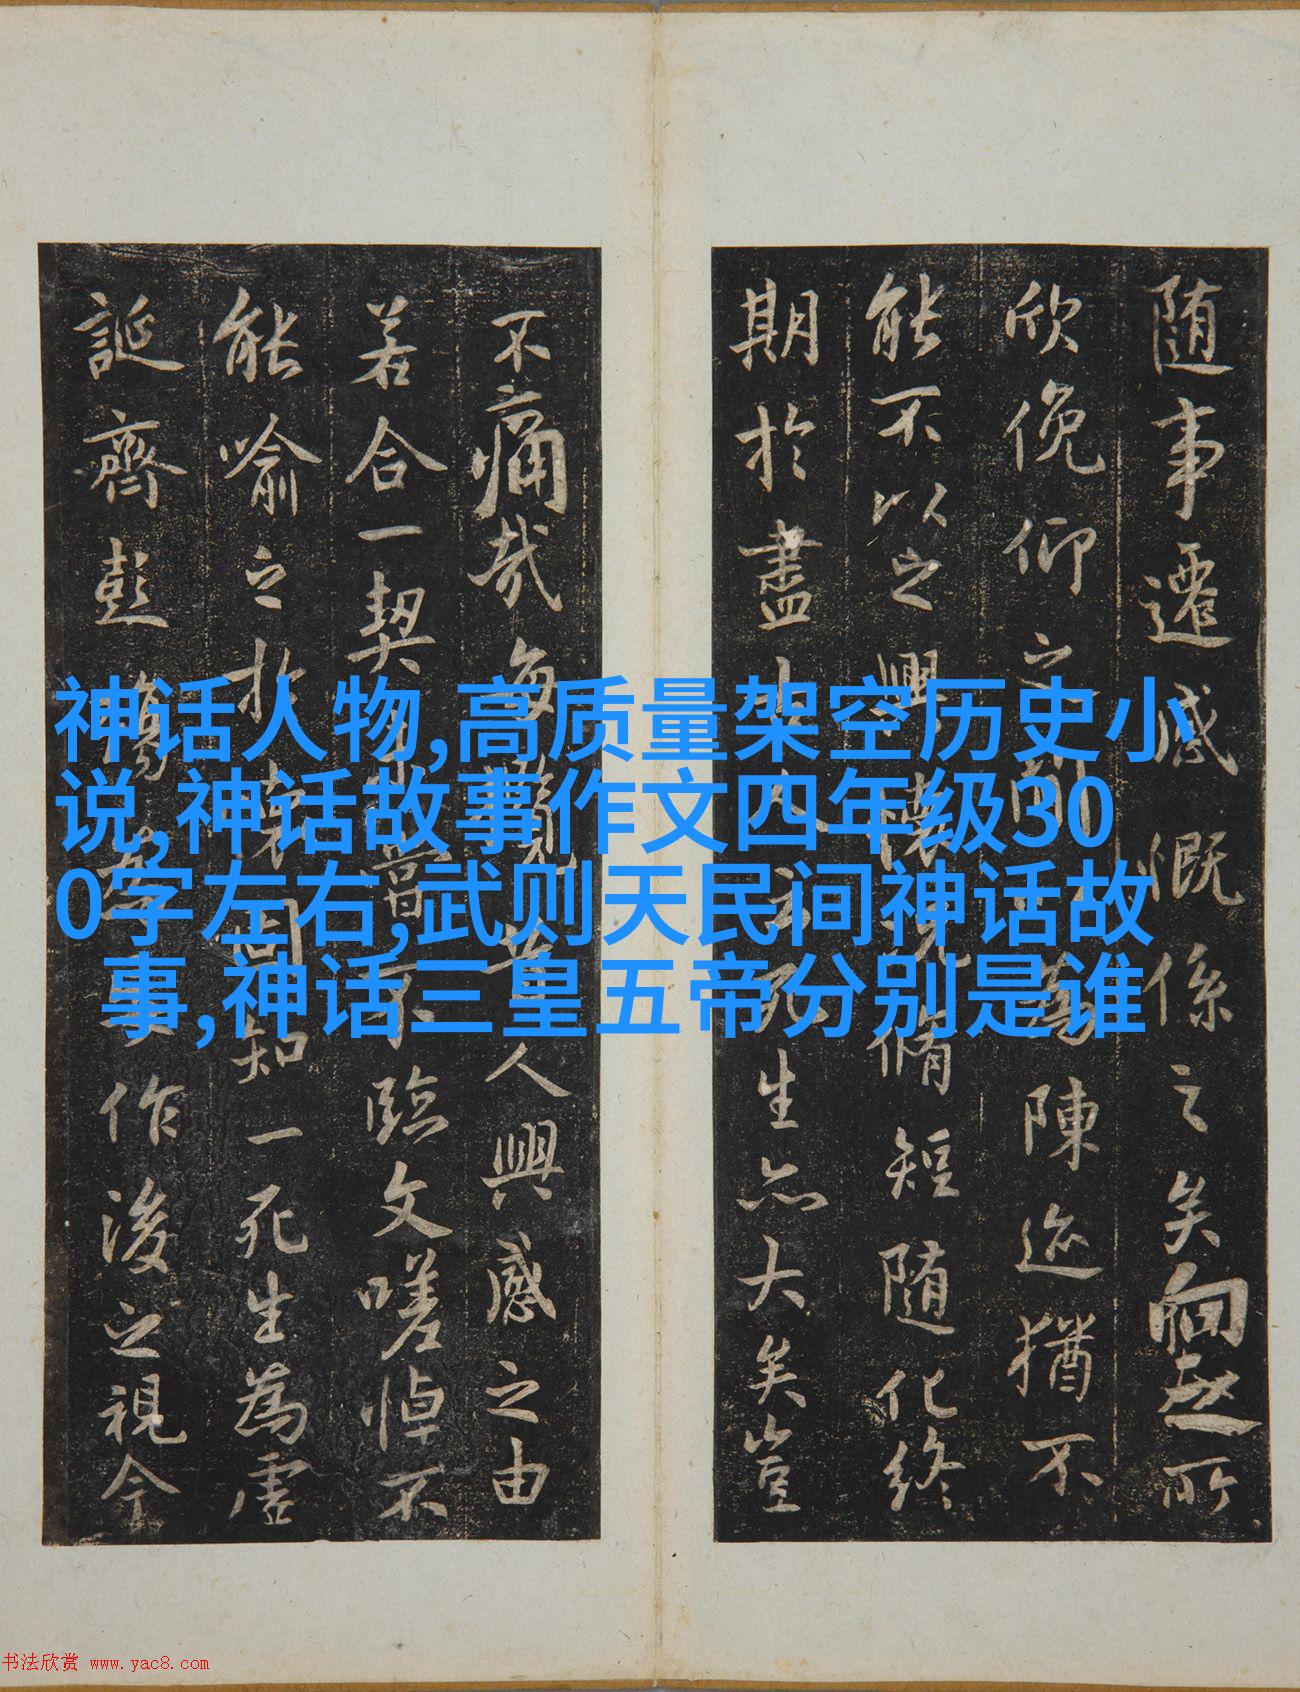 随事遷感慨係之矣向之所
欣俛仰之間為陳迹猶不
能不以之興懷況脩短随化終
期於盡古人云死生亦大矣豈
不痛哉每攬昔人興感之由
若合一契未嘗不臨文嗟悼不
能喻之於懷固知一死生為虛
誕齊彭殤為妄作後之視今
神话人物,高质量架空历史小
说,神话故事作文四年级30
0字左右,武则天民间神话故
事,神话三皇五帝分别是谁
书法欣赏 www.yac8.com